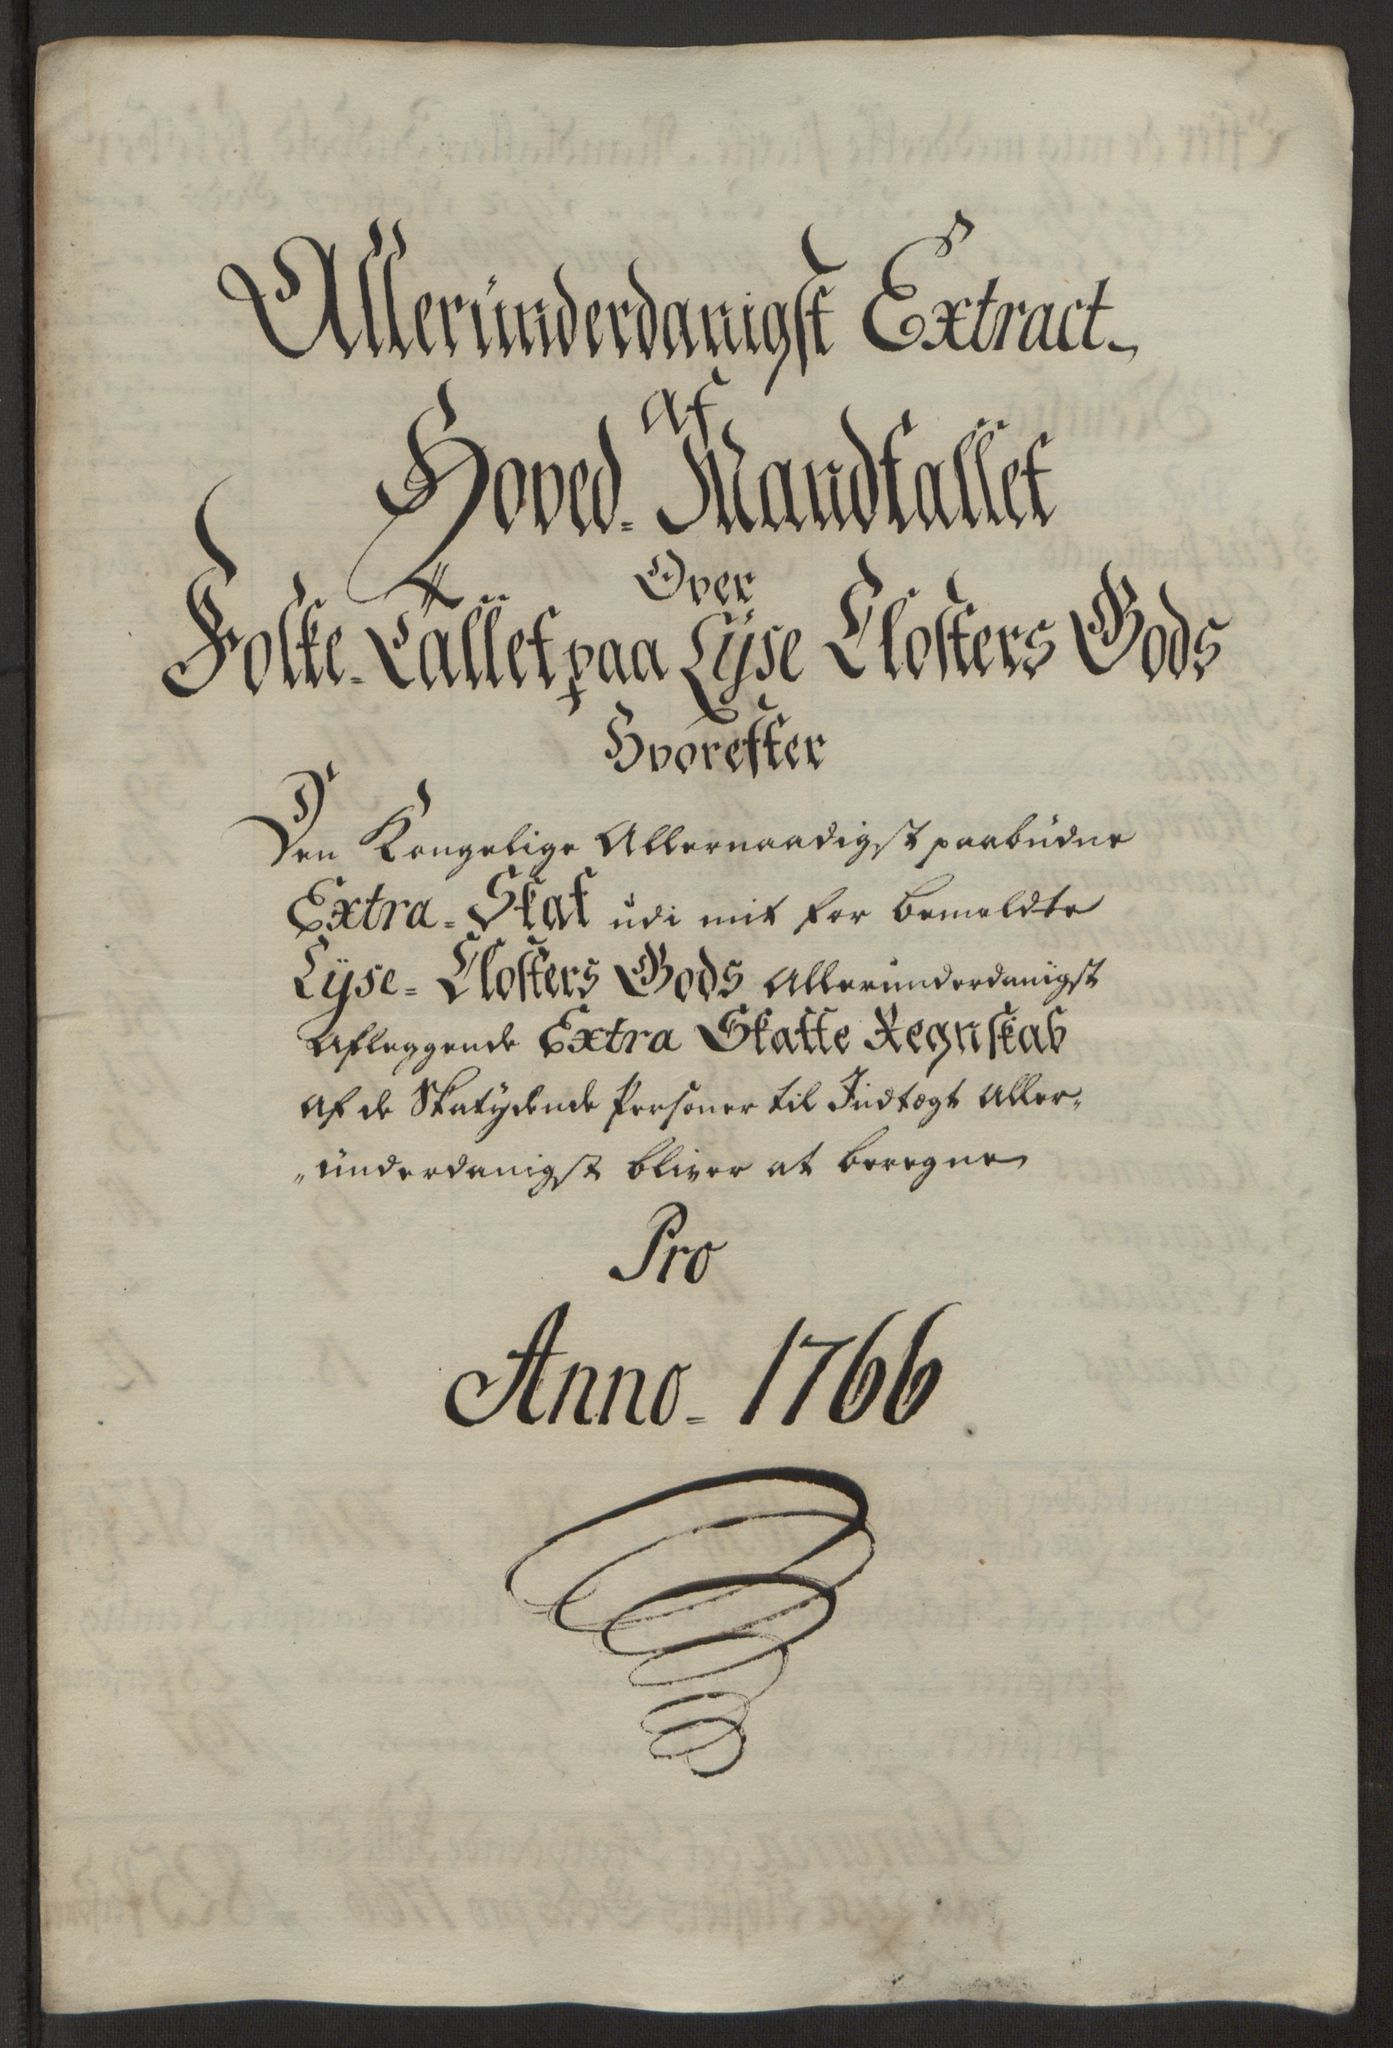 Alleründerdanigst Extract
Af
Hoved-Mandtallet
Over
Folke-Tallet paa Lÿse Closters Gods
Hvorefter
Den Kongelige Allernaadigst paabudne
Extra-Skat udi mit for bemeldte
Lÿse-Closters Gods Allerunderdanigst
Afleggende Extra Skatte Regnskab
Af de Skatÿdende Personer til Indtægt Aller-
ünderdanigst bliver at beregne
Pro
Anno-1766